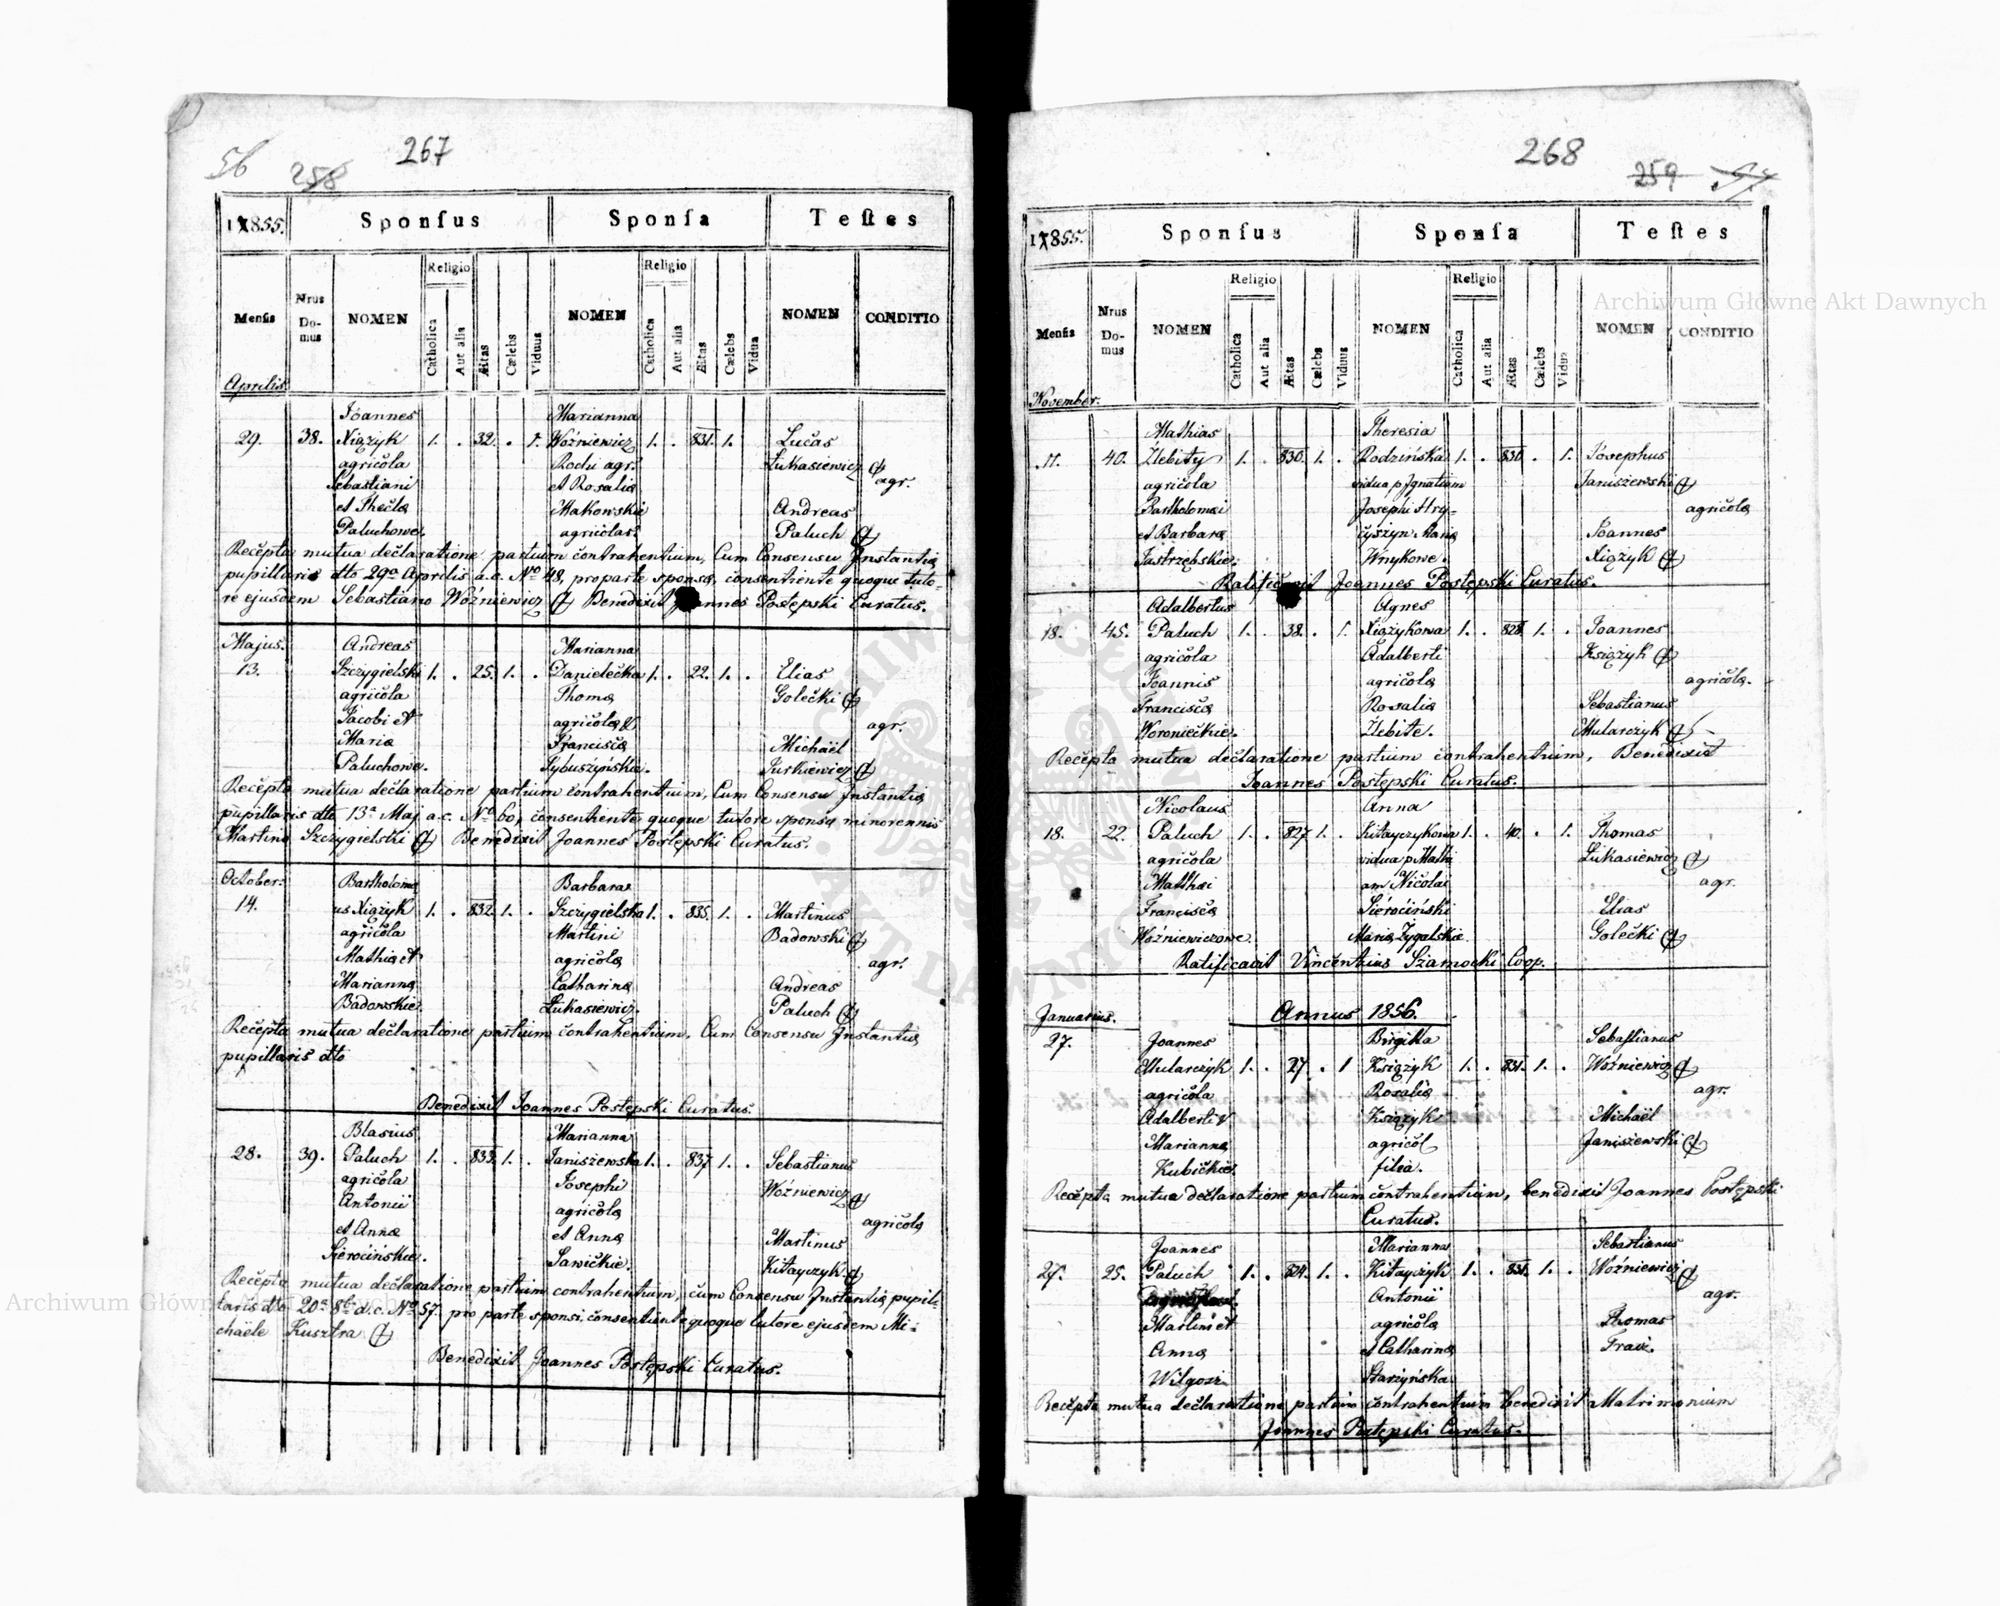 56 258 267
1855. Sponſus Sponſa Teſtes
Menſis Nrus Domus NOMEN Religio Catholica Aut alia Ætas Cælebs Viduus NOMEN Religio Catholica Aut alia Ætas Cælebs Vidua NOMEN CONDITIO
Aprilis
Joannes Marianna
29. 38. Xiązyk 1. . 32. . 1. Woźniewicz 1. . 831. 1. Lucas
agricola Rochi agr. Łukasiewicz
Sebastiani et Rosaliæ agr.
et Theclæ Makowskie Andreas
Paluchowe. agricolar. Paluch
Recepta mutua declaratione partium contrahentium, Cum Consensu Instantiæ
pupillaris dto 29a Aprilis a.c. No 48, pro parte sponsæ, consentiente quoque tuto-
re ejusdem Sebastiano Woźniewicz Benedixit Joannes Postępski Curatus.
Majus. Andreas Marianna
13. Szczygielski 1. . 25. 1. . Danielecka 1. . 22. 1. . Elias
agricola Thomæ Golecki
Jacobi et agricolæ & agr.
Mariæ Franciscæ Michaël
Paluchowe. Sybuszyńskie. Jurkiewicz
Recepta mutua declaratione partium contrahentium, Cum Consensu Instantiæ
pupillaris dto 13a Maj a.c. No 60, consentiente quoque tutore sponsæ minorennis
Martino Szczygielski Benedixit Joannes Postępski Curatus.
October. Bartholomæ Barbara
14. us Xiązyk 1. . 832. 1. . Szczygielska 1. . 835. 1. . Martinus
agricola Martini Badowski
Mathiæ et agricolæ agr.
Mariannæ Catharinæ Andreas
Badowskie. Łukasiewicz. Paluch
Recepta mutua declaratione partium contrahentium, Cum Consensu Instantiæ
pupillaris dto
Benedixit Joannes Postępski Curatus.
Blasius Marianna
28. 39. Paluch 1. . 833. 1. . Janiszewska 1. . 837 1. . Sebastianus
agricola Josephi Woźniewicz
Antonii agricolæ agricolæ
et Annæ et Annæ Martinus
Sierocińskie. Sawickie. Kitayczyk
Recepta mutua declaratione partium contrahentium, cum Consensu Instantiæ pupil-
laris dto 20a 8br a.c. No 57. pro parte sponsi, consentiente quoque tutore ejusdem Mi-
chaële Kusztra
Benedixit Joannes Postępski Curatus.
268
259
1855. Sponſus Sponſa Teſtes
Menſis Nrus Domus NOMEN Religio Catholica Aut alia Ætas Cælebs Viduus NOMEN Religio Catholica Aut alia Ætas Cælebs Vidua NOMEN CONDITIO
November.
Mathias Theresia
11. 40. Zlebity 1. . 830. 1. . Rodzińska 1. . 830 . 1. Josephus
agricola vidua p Ignatium Janiszewski
Bartholomæi Josephi Hry- agricolæ
et Barbaræ czyszyn Annæ Joannes
Jastrzębskie. Wnykowe. Xiązyk
Ratificavit Joannes Postępski Curatus.
Adalbertus Agnes
18. 45. Paluch 1. . 38. . 1. Xiązykowa 1. . 828. 1. . Joannes
agricola Adalberti Księżyk
Joannis agricolæ agricolæ.
Franciscæ Rosaliæ Sebastianus
Woronieckie. Zlebite. Mularczyk
Recepta mutua declaratione partium contrahentium, Benedixit
Joannes Postępski Curatus.
Nicolaus Anna
18. 22. Paluch 1. . 827 1. . Kitayczykowa 1. . 40. . 1. Thomas
agricola vidua p Mathi Łukasiewicz
Mathæi am Nicolai agr.
Franciscæ Sierociński Elias
Woźniewiczowe. Mariæ Zygalskie. Golecki
Ratificavit Vincentius Szamocki Coop.
Januarius. Annus 1856.
27. Joannes Brigitta Sebastianus
Mularczyk 1. . 27 . 1 Księżyk 1. . 831. 1. . Woźniewicz
agricola Rosaliæ agr.
Adalberti & Księżyk Michaël
Mariannæ agricol Janiszewski
Kubickie. filia.
Recepta mutua declaratione partium contrahentium, benedixit Joannes Postępski
Curatus.
Joannes Marianna Sebastianus
27. 25. Paluch 1. . 824. 1. . Kitayczyk 1. . 831. 1. . Woźniewicz
Antonii agr.
Martini et agricolæ Thomas
Annæ et Catharinæ Fraiz.
Wilgosz Starzyńska
Recepta mutua declaratione partium contrahentium benedixit Matrimonium
Joannes Postępski Curatus.
Archiwum Główne Akt Dawnych
Archiwum Główne Akt Dawnych
ARCHIWUM GŁÓWNE AKT DAWNYCH